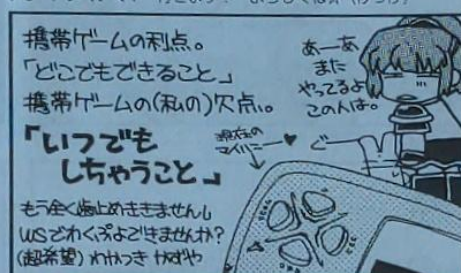 携帯ゲームの利点。
「どこでもできること」
携帯ゲームの(私の)欠点。
「いつでも
しちゃうこと」
もう全く歯止めききませんし
WSでわくぷよできませんか?
(超希望) わかつき かずや
あーあ
また
やってるよ
この人は。
現在の
マイリー
ぐ